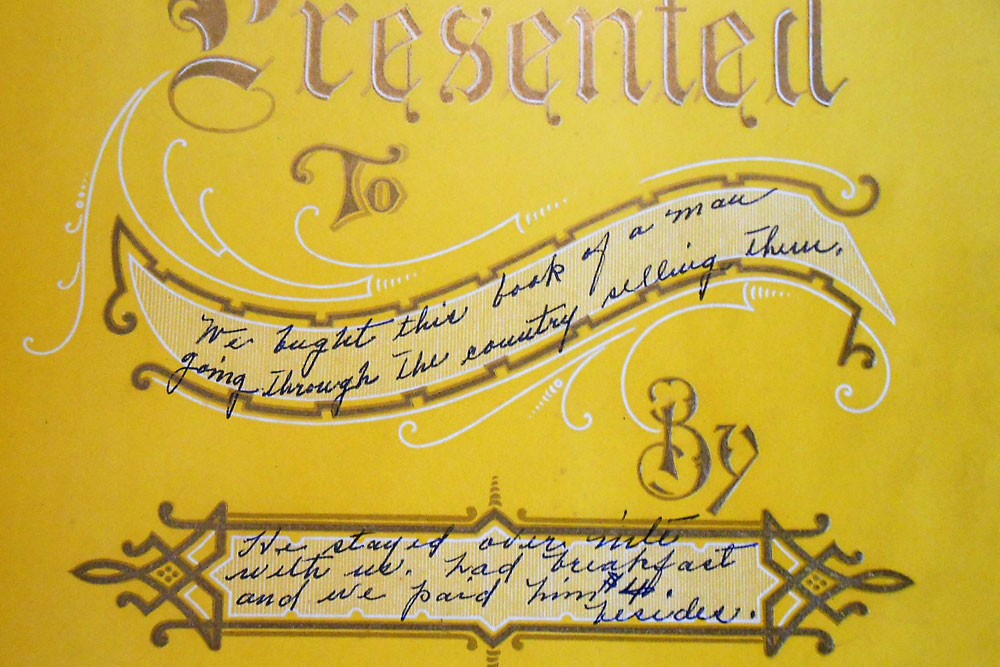 Presented
To
We bught this book of a man
going through the country selling them.
By
He stayed over nite
with us. had breakfast
and we paid him $4.
besides.